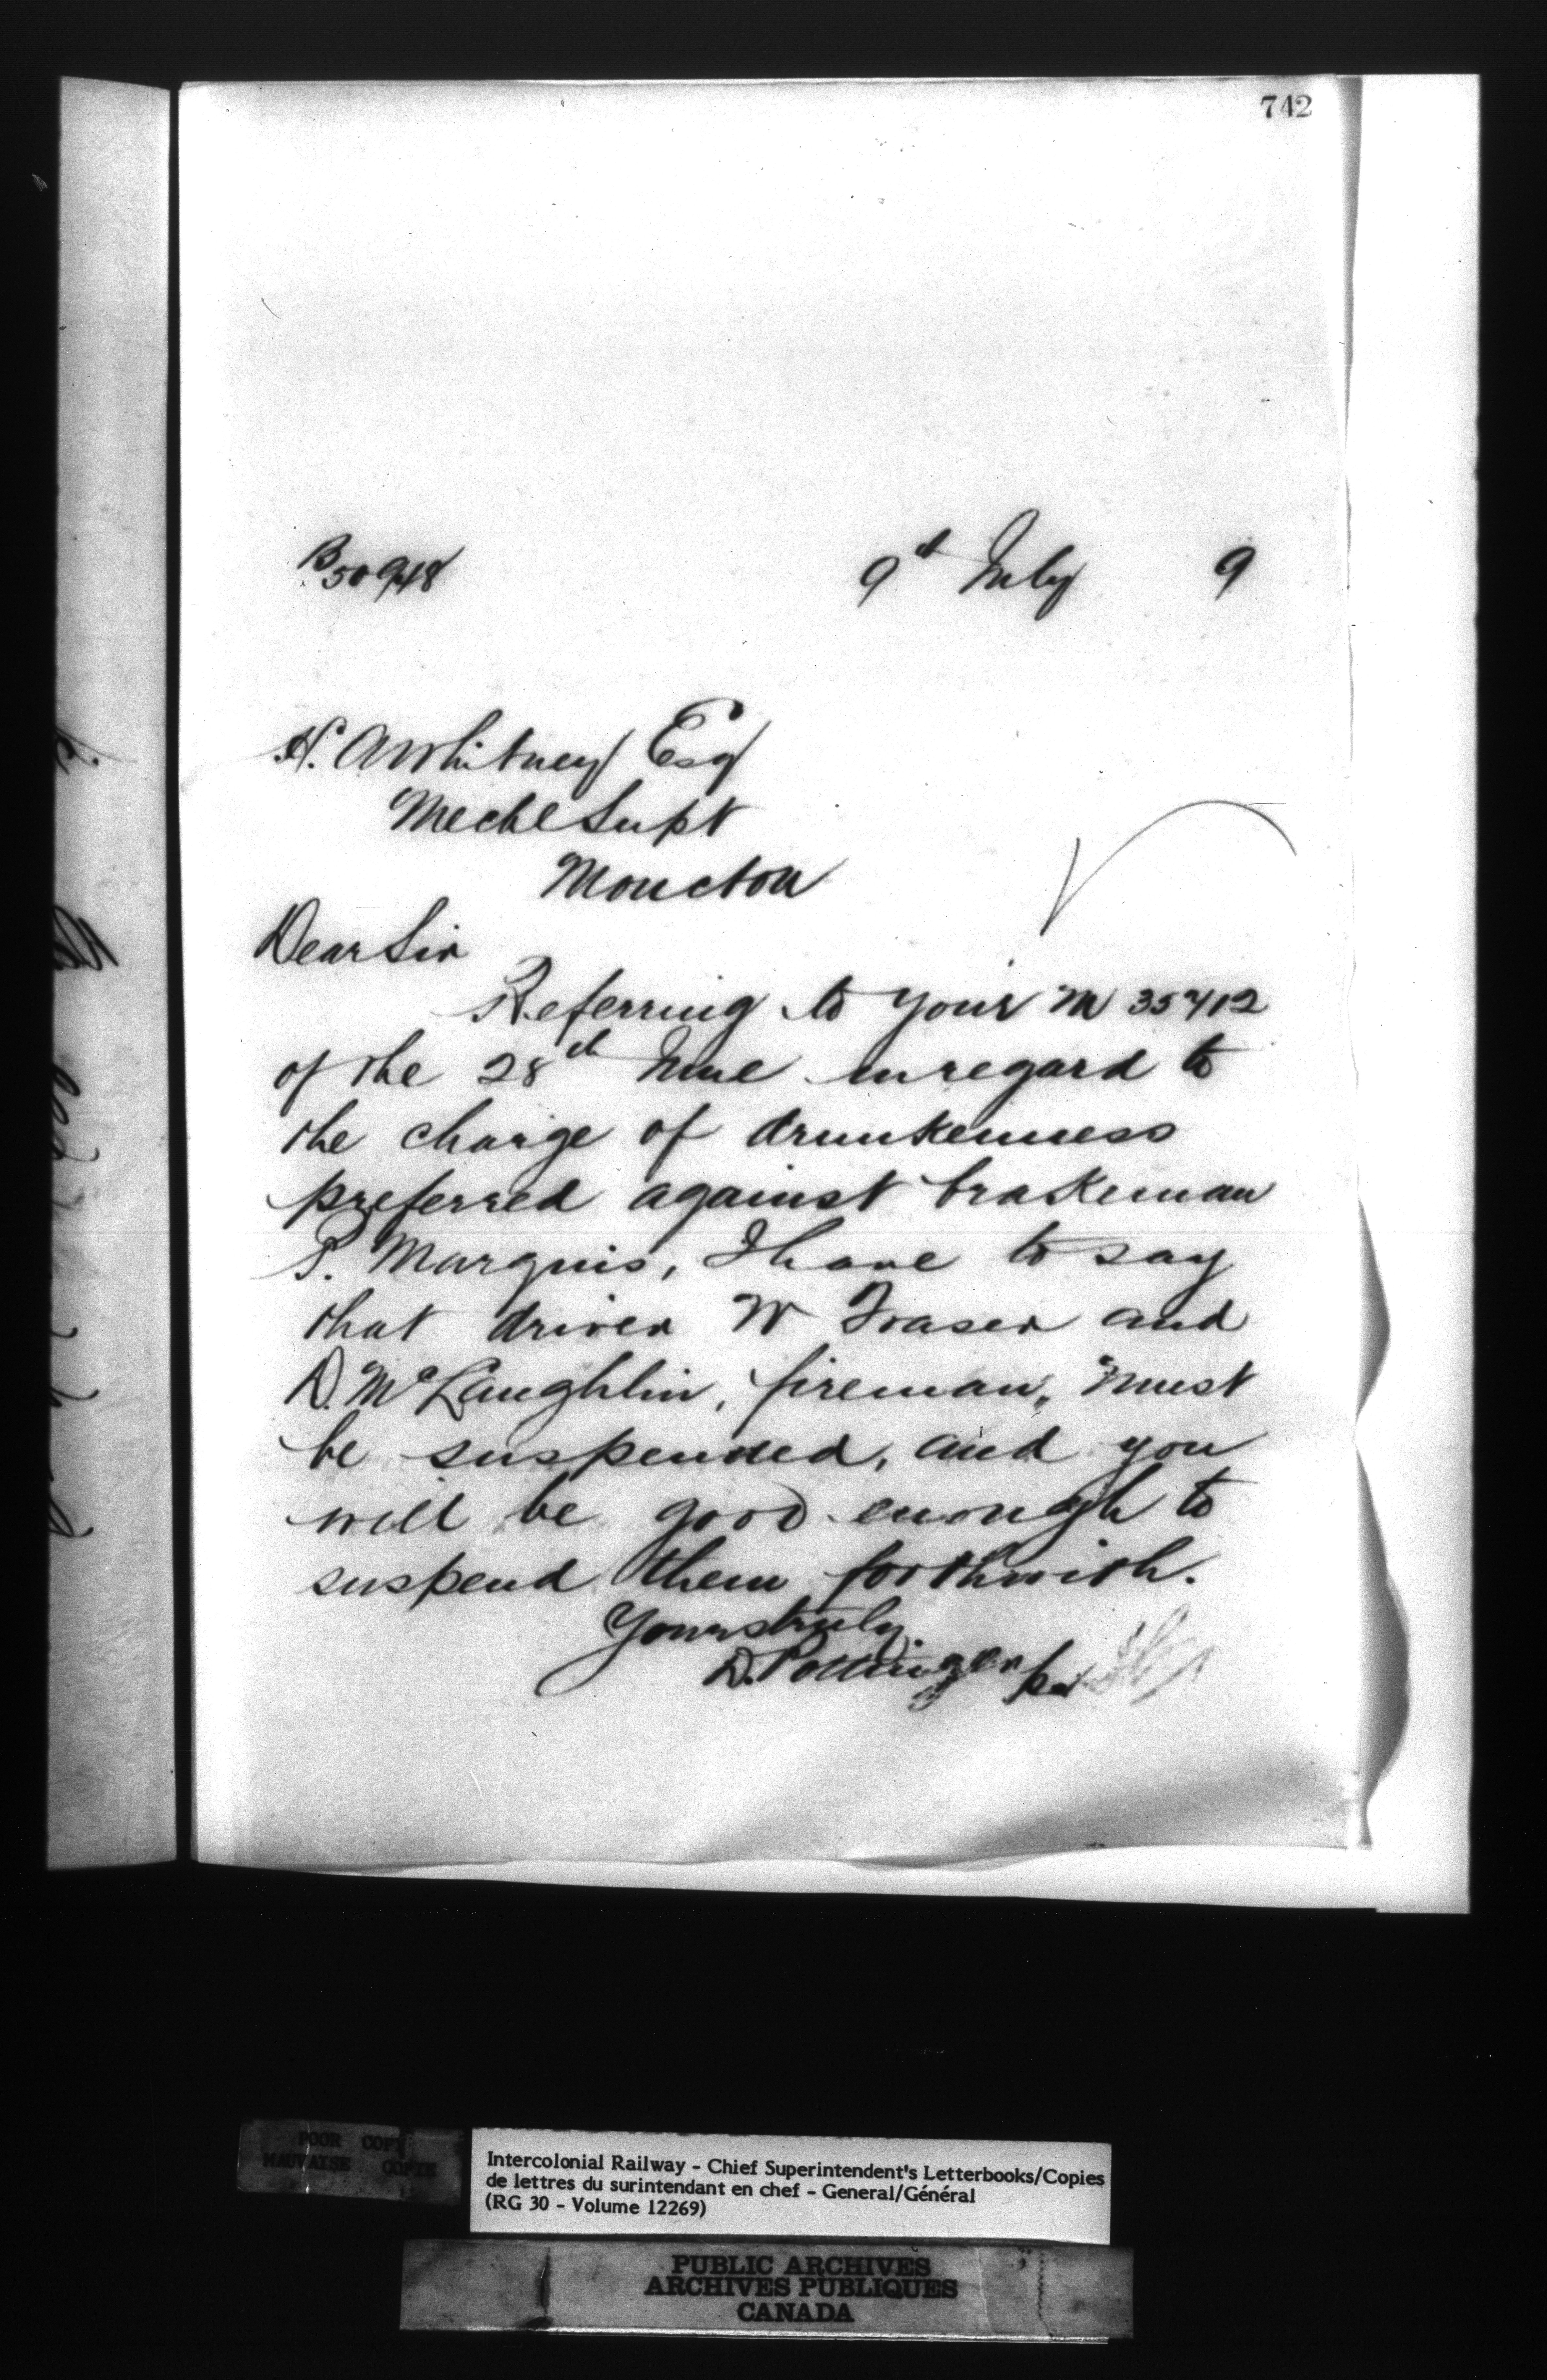 742
B50948
9th July 9
H. A Whitney Esq
Mechl Supt
Moncton
Dear Sir
Referring to your M 35412
of the 28th June in regard to
the charge of drunkenness
preferred against brakeman
P. Marquis, I have to say
that driver W Fraser and
D. McLaughlin, fireman, must
be suspended, and you
will be good enough to
suspend them forthwith.
Yours truly
D. Pottinger per
POOR COPY
MAUVAISE COPIE
Intercolonial Railway - Chief Superintendent's Letterbooks/Copies
de lettres du surintendant en chef - General/Général
(RG 30 - Volume 12269)
PUBLIC ARCHIVES
ARCHIVES PUBLIQUES
CANADA